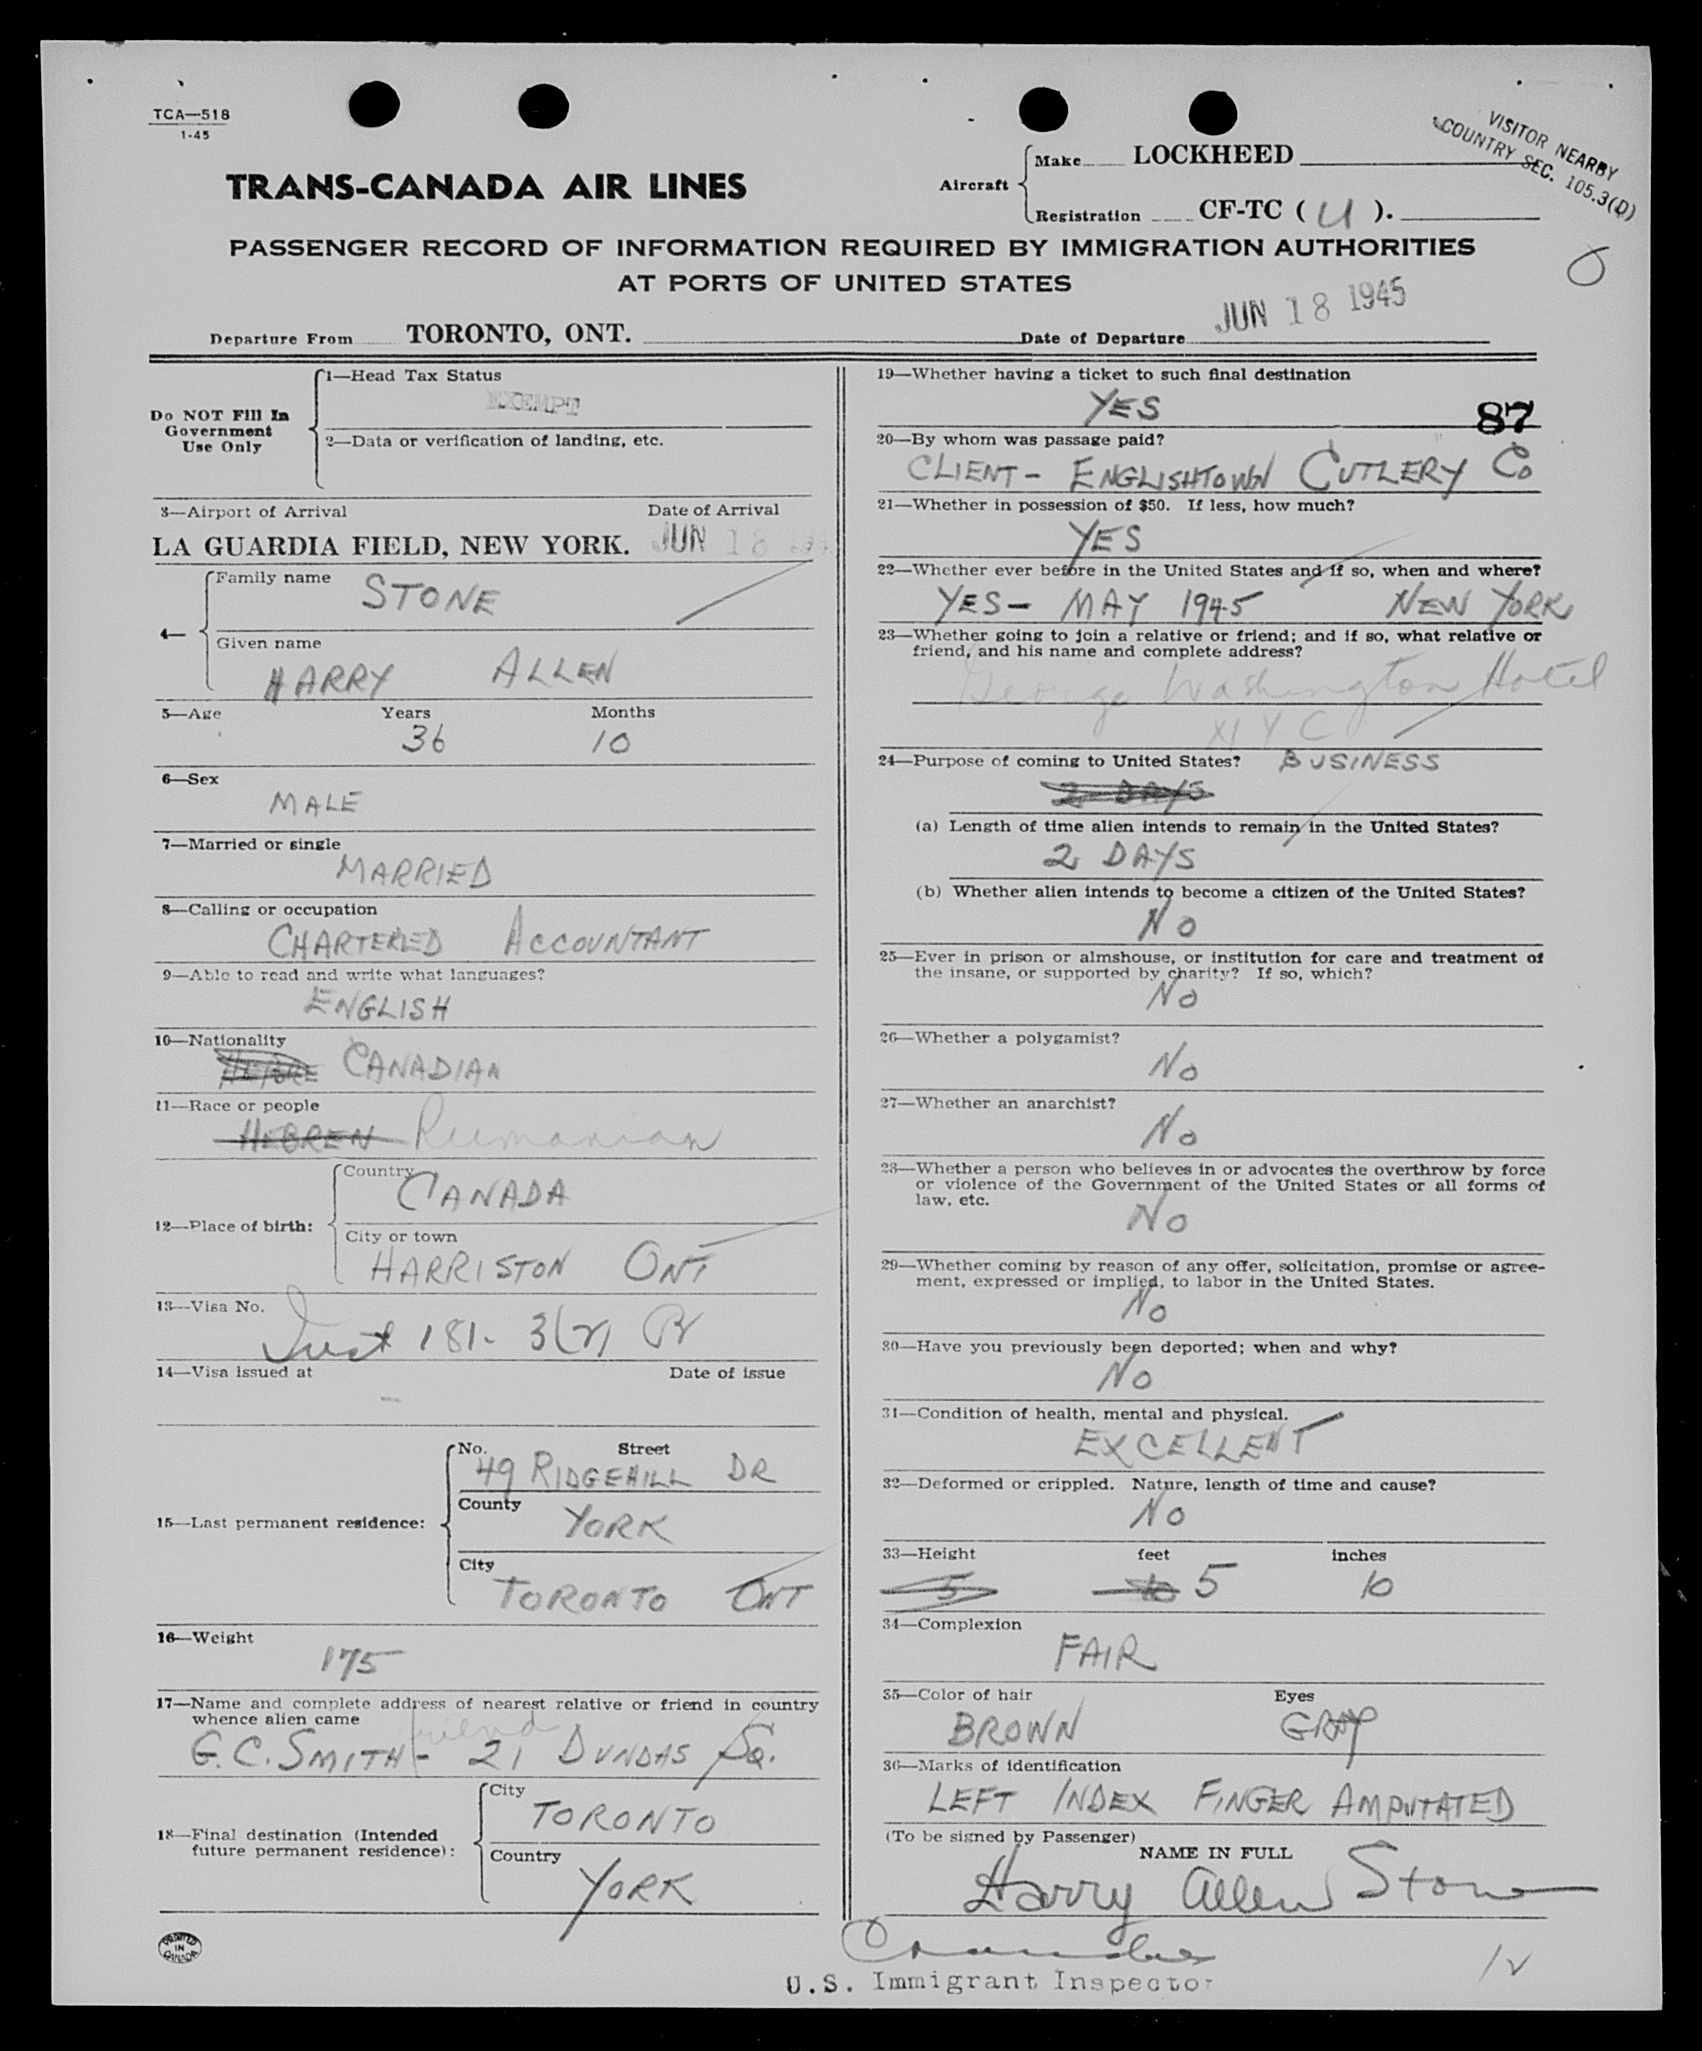 TCA—518
1-45
VISITOR NEARBY
COUNTRY SEC. 105.3(D)
TRANS-CANADA AIR LINES
Aircraft
Make LOCKHEED
Registration CF-TC ( U ).
PASSENGER RECORD OF INFORMATION REQUIRED BY IMMIGRATION AUTHORITIES
AT PORTS OF UNITED STATES
Departure From TORONTO, ONT. Date of Departure JUN 18 1945
Do NOT Fill In
Government
Use Only
1—Head Tax Status
EXEMPT
2—Data or verification of landing, etc.
3—Airport of Arrival Date of Arrival
LA GUARDIA FIELD, NEW YORK. JUN 18
4—
Family name STONE
Given name
HARRY ALLEN
5—Age Years Months
36 10
6—Sex
MALE
7—Married or single
MARRIED
8—Calling or occupation
CHARTERED ACCOUNTANT
9—Able to read and write what languages?
ENGLISH
10—Nationality
CANADIAN
11—Race or people
HEBREN Rumanian
12—Place of birth:
Country
CANADA
City or town
HARRISTON ONT
13—Visa No.
181- 3
14—Visa issued at Date of issue
—
15—Last permanent residence:
No. Street
49 RIDGEHILL DR
County
YORK
City
TORONTO ONT
16—Weight
175
17—Name and complete address of nearest relative or friend in country
whence alien came
friend
G. C. SMITH - 21 DUNDAS SQ.
18—Final destination (Intended
future permanent residence):
City
TORONTO
Country
YORK
PRINTED
IN
CANADA
19—Whether having a ticket to such final destination
YES
87
20—By whom was passage paid?
CLIENT - ENGLISHTOWN CUTLERY Co
21—Whether in possession of $50. If less, how much?
YES
22—Whether ever before in the United States and if so, when and where?
YES - MAY 1945 NEW YORK
23—Whether going to join a relative or friend; and if so, what relative or
friend, and his name and complete address?
George Washington Hotel
N Y C
24—Purpose of coming to United States? BUSINESS
2 DAYS
(a) Length of time alien intends to remain in the United States?
2 DAYS
(b) Whether alien intends to become a citizen of the United States?
NO
25—Ever in prison or almshouse, or institution for care and treatment of
the insane, or supported by charity? If so, which?
NO
26—Whether a polygamist?
NO
27—Whether an anarchist?
NO
28—Whether a person who believes in or advocates the overthrow by force
or violence of the Government of the United States or all forms of
law, etc.
NO
29—Whether coming by reason of any offer, solicitation, promise or agree-
ment, expressed or implied, to labor in the United States.
NO
30—Have you previously been deported; when and why?
NO
31—Condition of health, mental and physical.
EXCELLENT
32—Deformed or crippled. Nature, length of time and cause?
NO
33—Height feet inches
5 10 5 10
34—Complexion
FAIR
35—Color of hair Eyes
BROWN GRAY
36—Marks of identification
LEFT INDEX FINGER AMPUTATED
(To be signed by Passenger)
NAME IN FULL
Harry Allen Stone
U.S. Immigrant Inspector